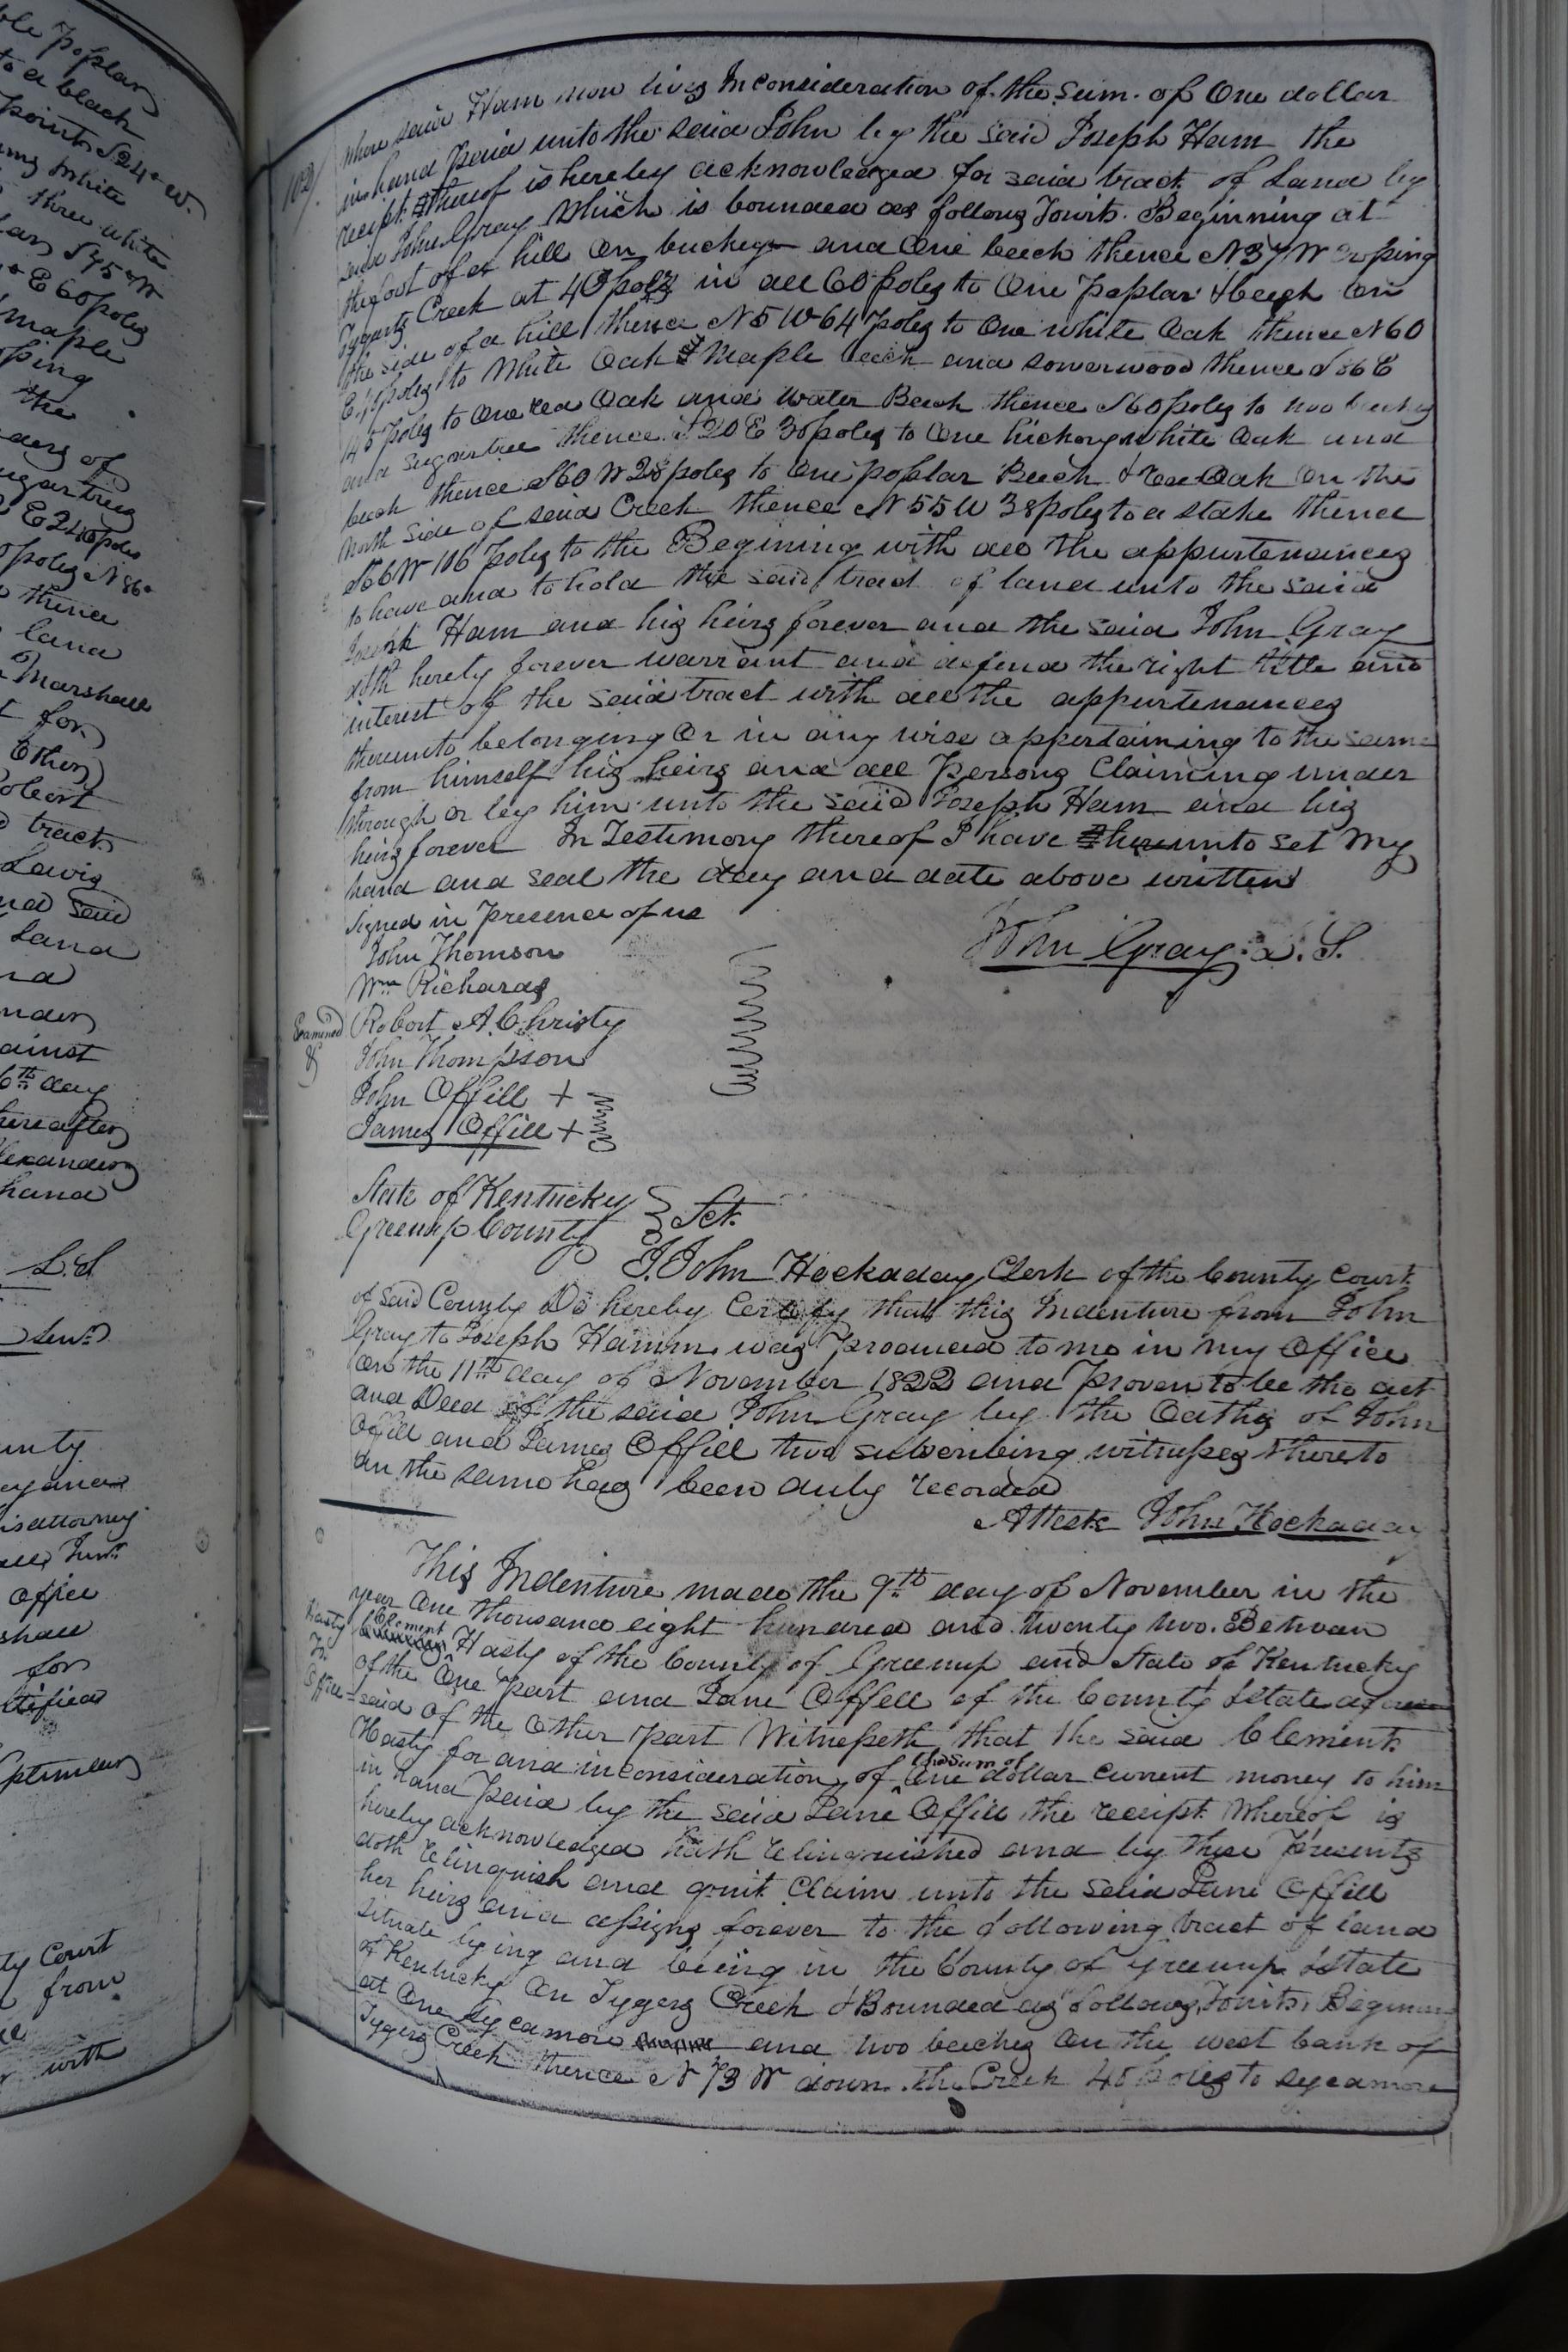 ble Poplar
to a black
points S24° W.
white
three white
S45° W
E 60 poles
maple
the
of
sugartree
E 240 poles
poles N 86°
thence
land
Marshall
t for
tract
Lewis
said
Land
6th day
hereafter
hand
L.S
unty
attorney
office
for
ty Court
from
with
102
where said Ham now lives In consideration of the sum of One dollar
in hand paid unto the said John by the said Joseph Ham the
receipt thereof is hereby acknowledged for said tract of Land by
said John Gray Which is bounded as follows Towit. Beginning at
the foot of a hill on buckeye and One beech thence N37W Crossing
Tygarts Creek at 40 poles in all 60 poles to One Poplar & beech on
the side of a hill thence N5W 64 poles to One white Oak thence N60
E poles to White Oak & Maple beech and sowerwood thence S86E
145 poles to One red Oak and water Beech thence S60 poles to two beeches
and sugartree thence S20E 30 poles to One hickory white Oak and
beech thence S60W 28 poles to One poplar Beech & Red Oak on the
North side of said Creek thence N55W 38 poles to a stake thence
S66W 106 poles to the Begining with all the appurtenances
to have and to hold the said tract of land unto the said
Joseph Ham and his heirs forever and the said John Gray
doth hereby forever warrant and defend the right title and
interest of the said tract with all the appurtenances
thereunto belonging Or in any wise appertaining to the same
from himself his heirs and all Persons Claiming under
through or by him unto the said Joseph Ham and his
heirs forever In Testimony thereof I have hereunto set my
hand and seal the day and date above written
Signed in Presence of us
John Gray L.S.
John Thomson
Wm Richards
Examined
Robert A. Christy
John Thompson
John Offill +
James Offill +
State of Kentucky
Greenup County } Sct.
I John Hockaday Clerk of the County Court
of said County Do hereby Certify that this Indenture from John
Gray to Joseph Hamm was Produced to me in my Office
on the 11th day of November 1822 and Proven to be the act
and Deed of the said John Gray by the Oaths of John
Offill and James Offill two subscribing witnesses thereto
an the same has been duly recorded
Attest John Hockaday
This Indenture made the 9th day of November in the
year One thousand eight hundred and twenty two. Between
Hasty
To
Offill
Clement
Hasty of the County of Greenup and State of Kentucky
of the One Part and Jane Offell of the County & State afore
said of the Other part Witnesseth that the said Clement
Hasty for and in consideration of the sum of One dollar current money to him
in hand Paid by the said Jane Offill the receipt Whereof is
hereby acknowledged hath relinquished and by these Presents
doth relinquish and quit Claim unto the said Jane Offill
her heirs and assigns forever to the following tract of land
situate lying and being in the County of Greenup & State
of Kentucky On Tygers Creek & Bounded as follows, Towit, Begining
at One Sycamore and two beeches on the west bank of
Tygers Creek thence N 73 W down the Creek 45 poles to sycamore